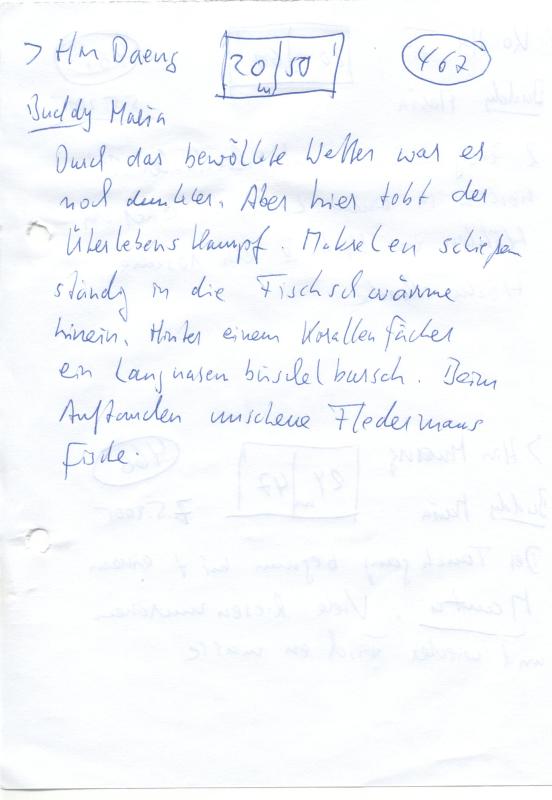 > Hin Daeng 20 m | 50 ' 467
Buddy Maria
Durch das bewölkte Wetter war es
noch dunkler. Aber hier tobt der
Überlebenskampf. Makrelen schießen
ständig in die Fischschwärme
hinein. Hinter einem Korallenfächer
ein Langnasenbüschelbarsch. Beim
Auftauchen Fledermaus
fische.